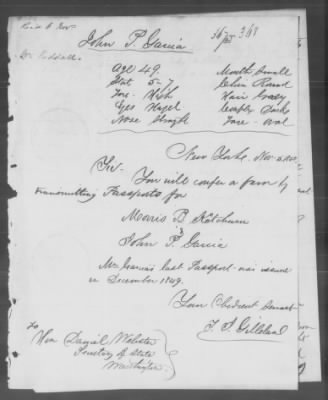 John P. Garcia
Age 49
Mouth Small
Stat 5-7
Chin Round
Fore High
Eyes Hazel
Nose Straight
Face Oval
New York, Nov. 5
Sir
You will confer a favor by
transmitting Passports for
Morris B Ketchum
&
John P. Garcia
Mr. Garcia's last Passport was issued
in December 1849.
Your Obedient Servant
To
Hon Daniel Webster
Secretary of State
Washington